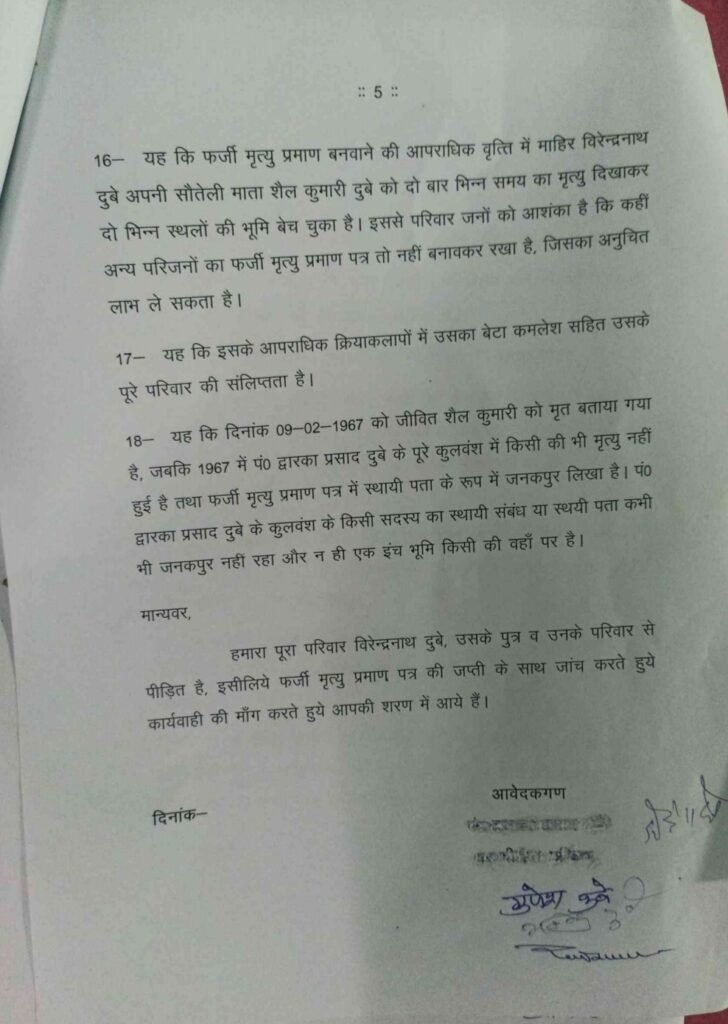 :: 5 ::
16– यह कि फर्जी मृत्यु प्रमाण बनवाने की आपराधिक वृत्ति में माहिर विरेन्द्रनाथ
दुबे अपनी सौतेली माता शैल कुमारी दुबे को दो बार भिन्न समय का मृत्यु दिखाकर
दो भिन्न स्थलों की भूमि बेच चुका है। इससे परिवार जनों को आशंका है कि कहीं
अन्य परिजनों का फर्जी मृत्यु प्रमाण पत्र तो नहीं बनावकर रखा है, जिसका अनुचित
लाभ ले सकता है।
17– यह कि इसके आपराधिक क्रियाकलापों में उसका बेटा कमलेश सहित उसके
पूरे परिवार की संलिप्तता है।
18– यह कि दिनांक 09–02–1967 को जीवित शैल कुमारी को मृत बताया गया
है, जबकि 1967 में पं0 द्वारका प्रसाद दुबे के पूरे कुलवंश में किसी की भी मृत्यु नहीं
हुई है तथा फर्जी मृत्यु प्रमाण पत्र में स्थायी पता के रूप में जनकपुर लिखा है। पं0
द्वारका प्रसाद दुबे के कुलवंश के किसी सदस्य का स्थायी संबंध या स्थयी पता कभी
भी जनकपुर नहीं रहा और न ही एक इंच भूमि किसी की वहाँ पर है।
मान्यवर,
हमारा पूरा परिवार विरेन्द्रनाथ दुबे, उसके पुत्र व उनके परिवार से
पीड़ित है, इसीलिये फर्जी मृत्यु प्रमाण पत्र की जप्ती के साथ जांच करते हुये
कार्यवाही की माँग करते हुये आपकी शरण में आये हैं।
आवेदकगण
दिनांक–